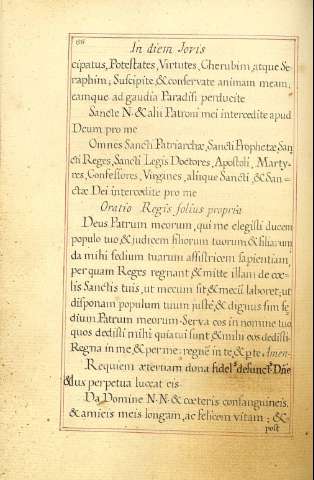 In diem Jovis
cipatus, Potestates, Virtutes, Cherubim, atque Se-
raphim; Suscipite, & conservate animam meam,
eamque ad gaudia Paradisi perducite
Sancte N. & alii Patroni mei intercedite apud
Deum pro me
Omnes Sancti Patriarchæ, Sancti Prophetæ, San
cti Reges, Sancti Legis Doctores, Apostoli, Marty-
res, Confessores, Virgines, aliique Sancti, & San=
ctæ Dei intercedite pro me
Oratio Regis solius propria
Deus Patrum meorum, qui me elegisti ducem
populo tuo & judicem filiorum tuorum & filiarum
da mihi sedium tuarum assistricem sapientiam,
per quam Reges regnant & mitte illam de cœ-
lis Sanctis tuis, ut mecum sit & mecū laboret; ut
disponam populum tuum justè, & dignus sim se
dium Patrum meorum. Serva eos in nomine tuo
quos dedisti mihi quia tui sunt & mihi eos dedisti.
Regna in me, & per me: regnē in te, & p te Amen.
Requiem æternam dona fidel.s defunct.s Dñe
& lux perpetua luceat eis
Da Domine N. N. & cœteris consanguineis,
& amicis meis longam, ac felicem vitam; &
post